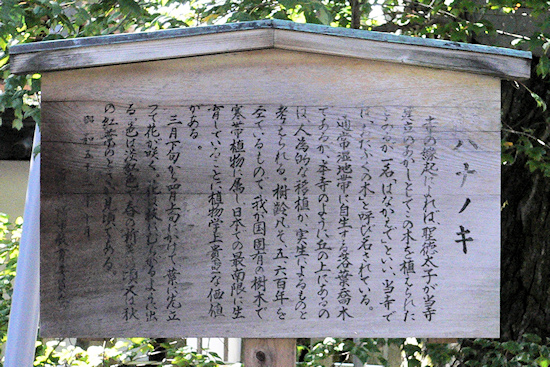 ハナノキ
本寺の縁起によれば、聖徳太子が当寺
建立のあかしとしてこの木を植えられた
とあるが、一名「はなかえで」といい、当寺で
は「 の木」と呼び名されている。
通常湿地帯に自生する落葉喬木
であるが、本寺のように丘の上にあるの
は、人為的な移植か、実生によるものと
考えられる。樹齢凡そ、五、六百年を
空てるもので、我が国固有の樹木で
寒帯植物に属し日本での最南限に生
育していることに植物学上貴重な価値
がある。
三月下旬から四月上旬にかけて、葉に先立
って花が咲く。花は枝に むらがるように出
る。色は淡紅色で、春の新芽の頃、又は秋
の紅葉のときは見事である。
昭和五十一年十月
教育委員会